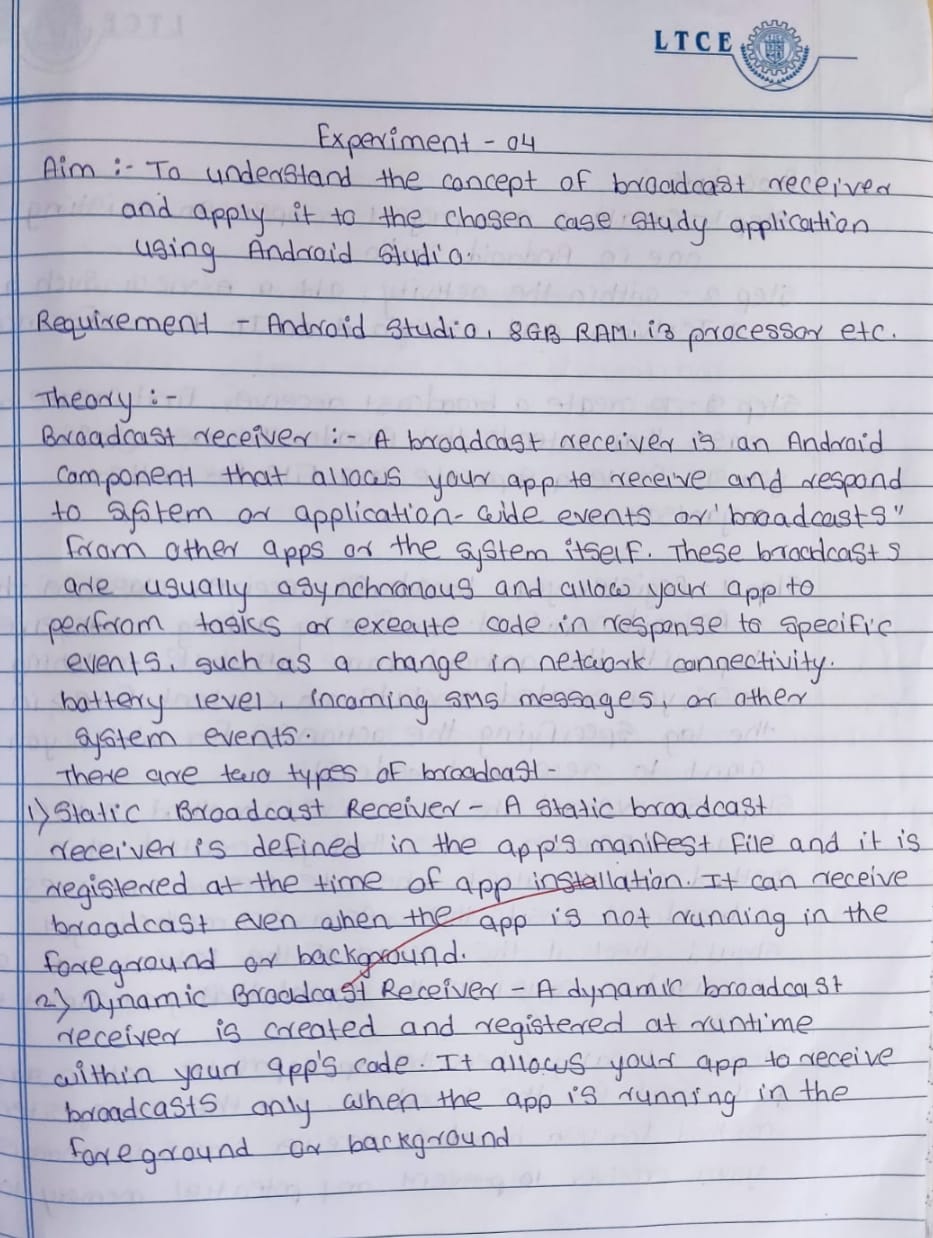 LTCE
Experiment - 04
Aim :- To understand the concept of broadcast receiver
and apply it to the chosen case study application
using Android Studio.
Requirement - Android Studio, 8GB RAM, i3 processor etc.
Theory :-
Broadcast receiver :- A broadcast receiver is an Android
component that allows your app to receive and respond
to system or application-wide events or "broadcasts"
from other apps or the system itself. These broadcasts
are usually asynchronous and allow your app to
perfrom tasks or execute code in response to specific
events, such as a change in network connectivity,
battery level, incoming sms messages, or other
system events
There are two types of broadcast -
1) Static Broadcast Receiver - A static broadcast
receiver is defined in the app's manifest file and it is
registered at the time of app installation. It can receive
broadcast even when the app is not running in the
foreground or background.
2) Dynamic Broadcast Receiver - A dynamic broadcast
receiver is created and registered at runtime
within your app's code. It allows your app to receive
broadcasts only when the app is running in the
foreground or background